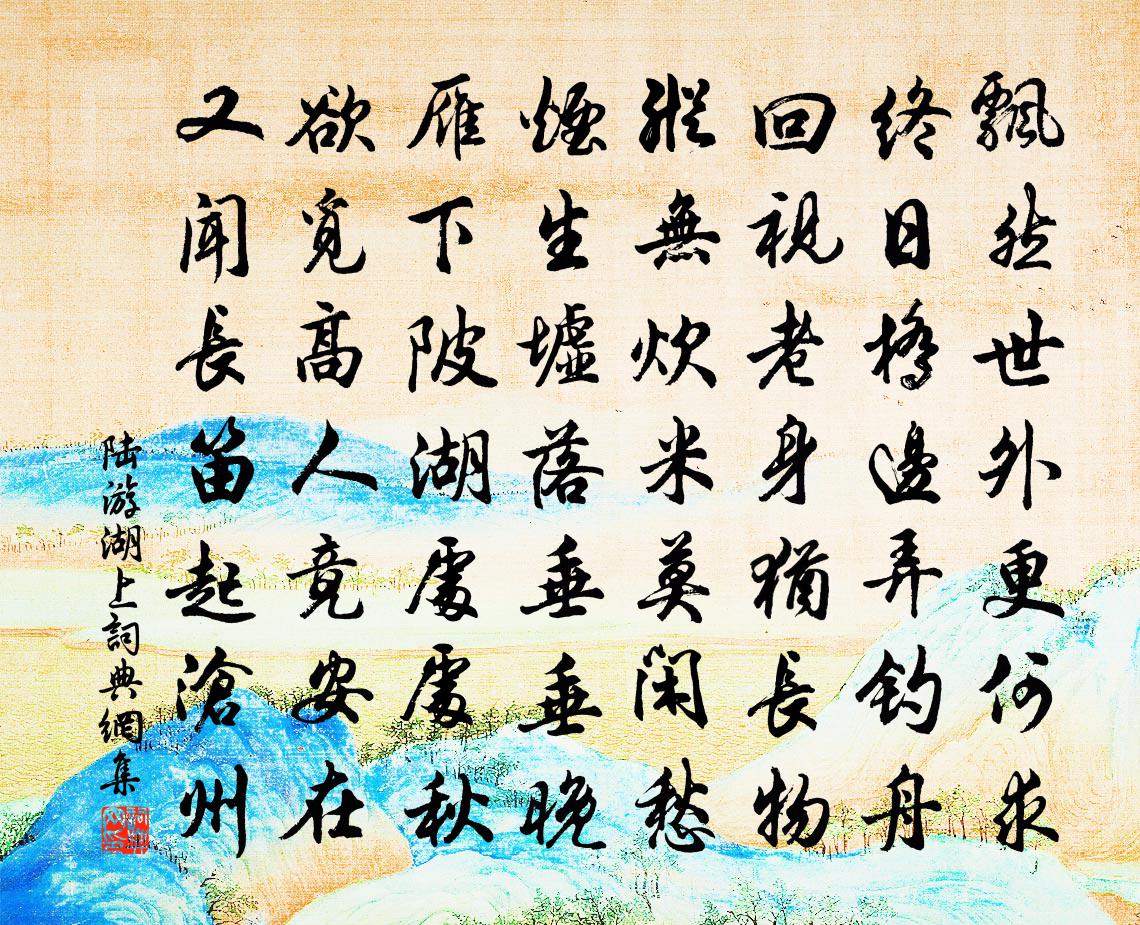 飄然世外更何求
終日橋邊弄釣舟
回視老身猶長物
縱無炊米莫閑愁
煙生墟落垂垂晚
雁下陂湖處處秋
欲覓高人竟安在
又聞長笛起滄州
陆游湖上詞典網集